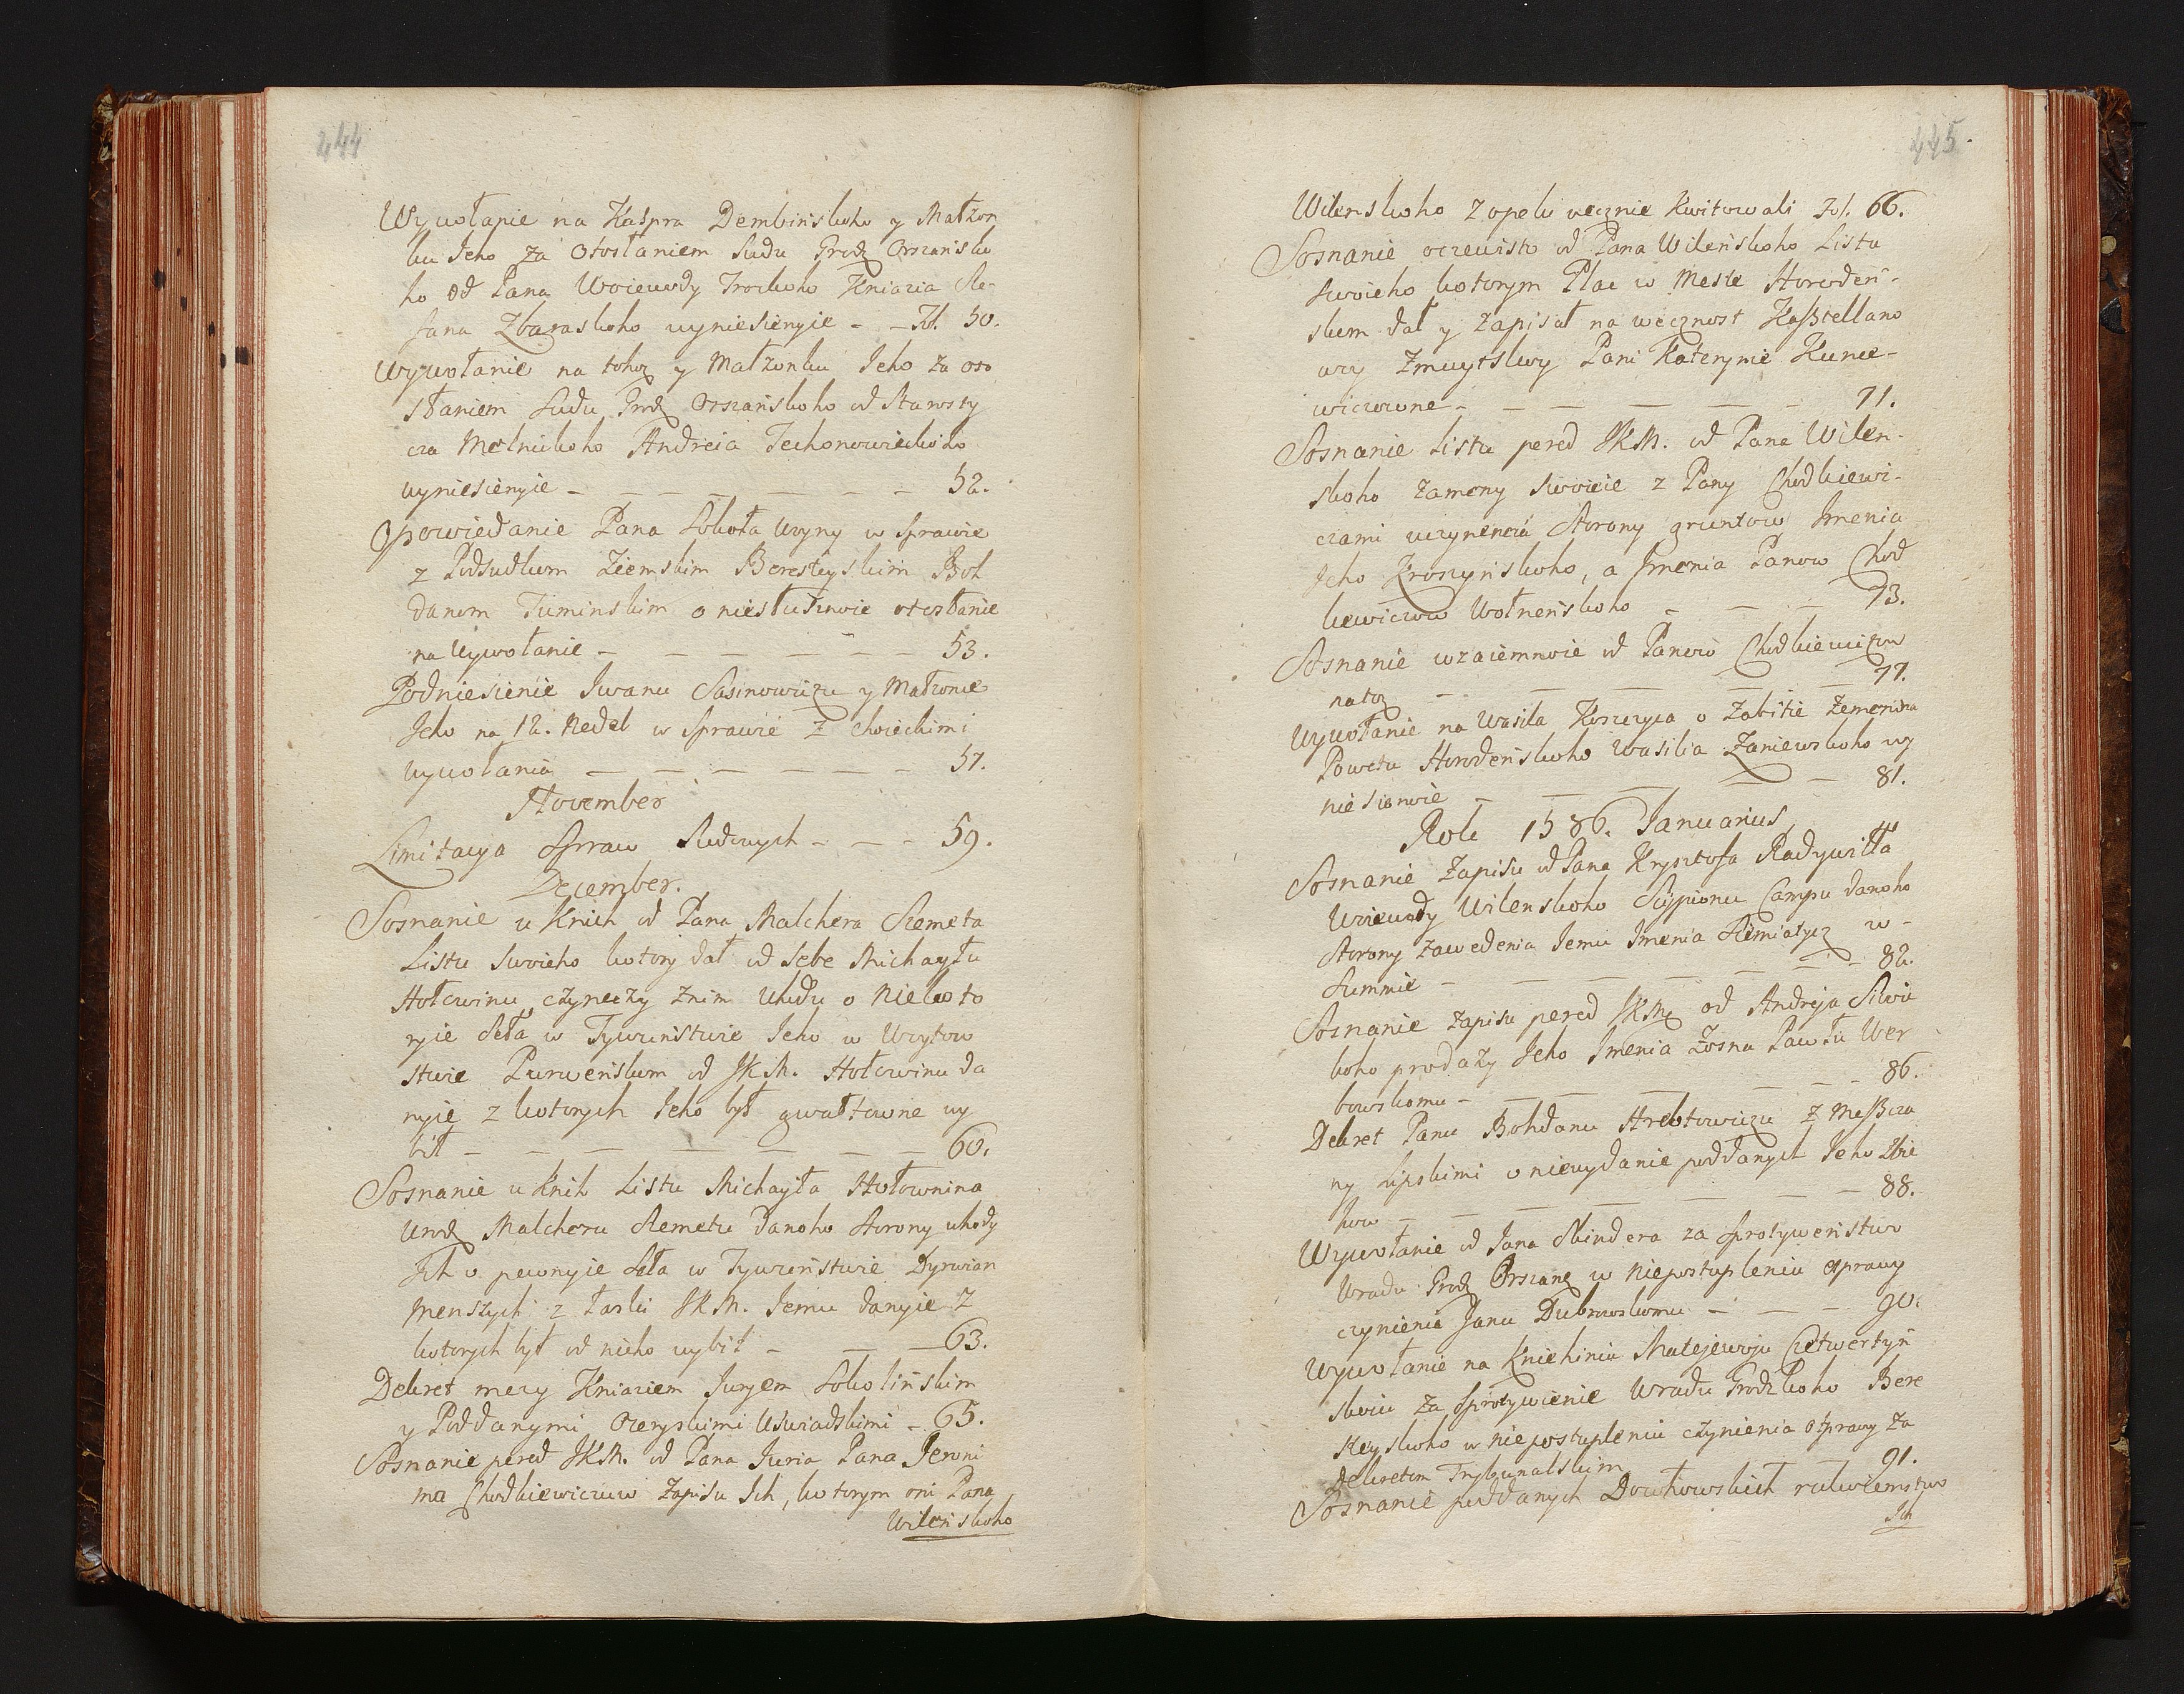 444
Wywołanie na Kaspra Dembinskoho y Małżon
ku Jeho za Otosłaniem Sudu Grodz Orszańsko
ho od Pana Woiewody Trockoho Kniazia Ste-
fana Zbaraskoho wyniesienyie - - Fol. 50.
Wywołanie na tohoż y Małżonku Jeho za oto
słaniem Sudu Grodz Orszańskoho od Starosty
cza Melnickoho Andreia Techonowieckoho
wyniesienyie - - - - - - - 52.
Opowiedanie Pana Sokoła Woyny w Sprawie
z Podsudkom Ziemskim Beresteyskim Boh
danom Tuminskim o niesłusznoie otosłanie
na Wywołanie - - - - - - - 53.
Podniesienie Iwanu Sasinowiczu y Małżonce
Jeho na 12. Nedel w Sprawie z Chwieckimi
wywołania - - - - - - - 57.
November
Limitacya Spraw Sudowych - - - 59.
December.
Sosnanie u Knih od Pana Malchera Szemeta
Listu Swoieho kotory dał od Sebe Michayłu
Hołowinu, czyneczy z nim Uhodu o Niekoto
ryie Seła w Tywunstwie Jeho w Wrytow
stwie Purwenskom od JKM. Hołowinu da
nyie z kotorych Jeho był gwałtowne wy
bił - - - - - - - 60.
Sosnanie u Knih Listu Michayła Hołownina
Urodz Malcheru Szemetu danoho Storony uhody
Ich o pewnyie Seła w Tywuństwie Dyrwian
Menszych z łaski JKM. Jemu danyie z
kotorych był od nieho wybił - - - 63.
Dekret mezy Kniaziem Juryem Sokolińskim
y Poddanymi Ozeryskimi Uswiadskimi - 65.
Sosnanie pered JKM. od Pana Juria Pana Jeroni
ma Chodkiewiczow Zapisu Ich, kotorym oni Pana
Wilenskoho
445.
Wilenskoho z opeki wecznie kwitowali Fol. 66.
Sosnanie oczewisto od Pana Wileńskoho Listu
Swoieho kotorym Plac w Mescie Horodeń-
skom dał y zapisał na wecznost Kasztellano
wey Zmuytskoy Pani Katerynie Kunce-
wiczowne - - - - - - 71.
Sosnanie Listu pered JKM. od Pana Wilen-
skoho zameny Swoieie z Pany Chodkiewi-
czami uczynenoia Storony gruntow Imenia
Jeho Kroszynskoho, a Imenia Panow Chod
kiewiczow Wołneńskoho - - - 73.
Sosnanie wzaiemnoie od Panow Chodkiewiczow
na toż - - - - - 77.
Wywołanie na Wasila Koszczyca o Zabitie Zemenina
Powetu Horodeńskoho Wasilia Zaniewskoho wy
niesienoie - - - - - 81.
Roku 1586. Ianuarius
Sosnanie Zapisu od Pana Krysztofa Radywiłła
Woiewody Wilenskoho Scypionu Campu danoho
Storony zawedenia Jemu Imenia Siemiatycz w -
Summie - - - - - - 82.
Sosnanie zapisu pered JKM od Andreja Siwic
koho prodaży Jeho Imenia Łosna Pawłu Wer
bowskomu - - - - - - 86.
Dekret Panu Bohdanu Hrebtowiczu z Meszcza
ny Lipskimi o niewydanie poddanych Jeho Zbie
how - - - - - - 88.
Wywołanie od Jana Skindera za sprotyweństwo
Wradu Grodz Orszansz w Niepostupleniu otprawy
czynienia Janu Dubrowskomu - - - 90.
Wywołanie na Kniehiniu Matejewuju Czetwertyń
skuiu za Sprotywienie Wradu Grodzkoho Bere
steyskoho w niepostupleniu czynienia otprawy za
Dekretom Trybunalskim 91.
Sosnanie poddanych Dowhowskich rukoiemstwo
Ich